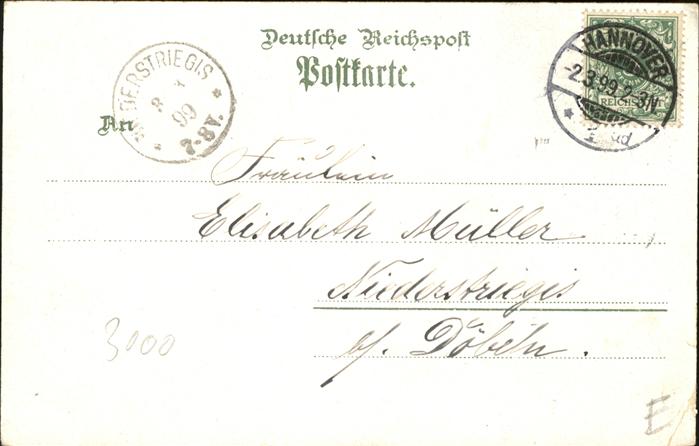 Deutsche Reichspost
Postkarte.
An
NIEDERSTRIEGIS
3
99
7-8V.
HANNOVER
-2.3.99.2-3N
REICHSPOST
Fräulein
Elisabeth Müller
Niederstriegis
b/. Döbeln.
3000
E